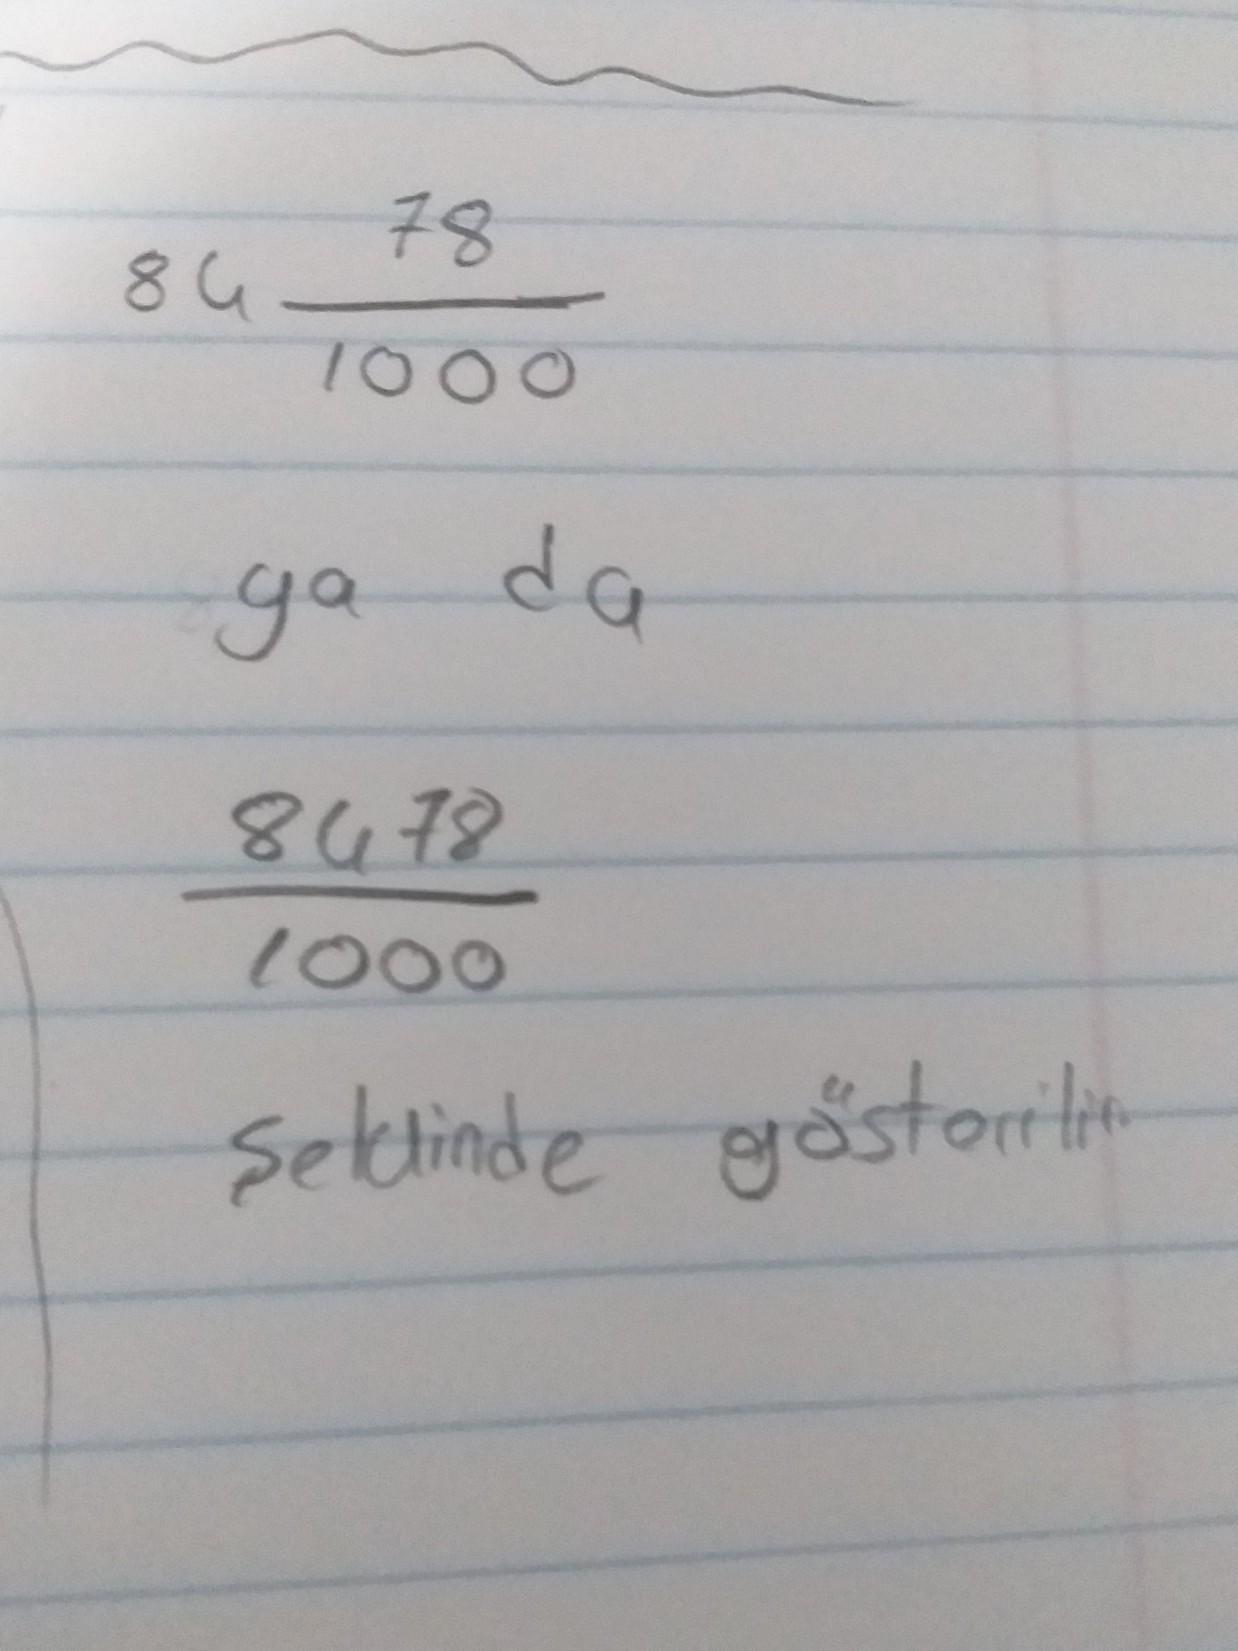 84 78/1000
ya da
8478/1000
şeklinde gösterilir